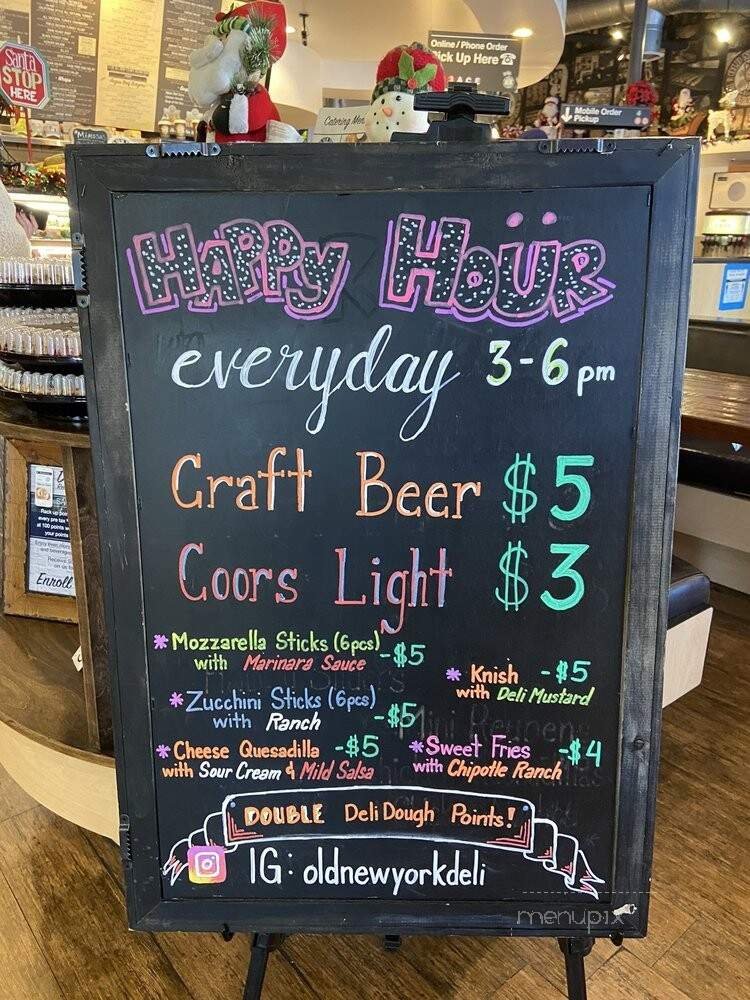 Santa
STOP
HERE
Online / Phone Order
Pick Up Here
Catering Menu
Mobile Order
Pickup
HAPPY HOÜR
everyday 3-6 pm
Craft Beer $5
Coors Light $3
*Mozzarella Sticks (6pcs)
with Marinara Sauce -$5
* Knish -$5
with Deli Mustard
*Zucchini Sticks (6pcs)
with Ranch -$5
*Cheese Quesadilla -$5
with Sour Cream & Mild Salsa
*Sweet Fries -$4
with Chipotle Ranch
DOUBLE Deli Dough Points!
IG: oldnewyorkdeli
Enroll
menupix